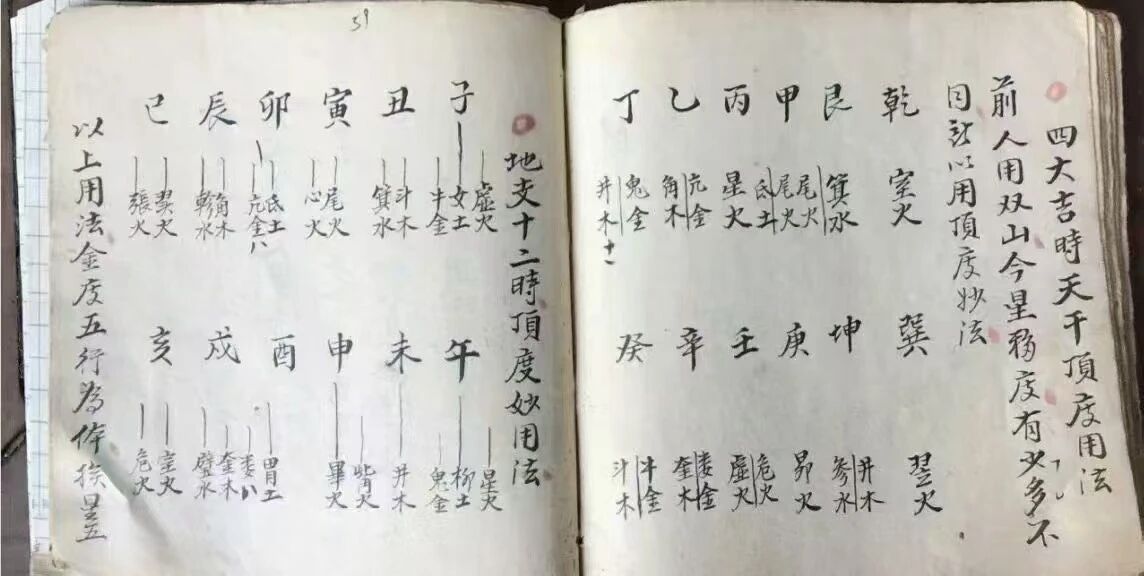 四大吉時天干頂度用法
前人用双山今星移度有少多不
以用頂度妙法
乾 艮 甲 丙 乙 丁
室火
箕水
尾火
尾火
氐土
星火
亢金
角木
鬼金
井木十一
巽 坤 庚 壬 辛 癸
翌火
井木
參水
昴火
危火
虛火
婁金
奎木
牛金
斗木
59
地支十二時頂度妙用法
子 丑 寅 卯 辰 巳
虛火
女土
牛金
斗木
箕水
尾火
心火
氐土
亢金八
角木
軫水
翌火
張火
午 未 申 酉 戌 亥
星火
柳土
鬼金
井木
觜火
畢火
胃土
婁八
奎木
壁水
室火
危火
以上用法金度五行為体挨星五